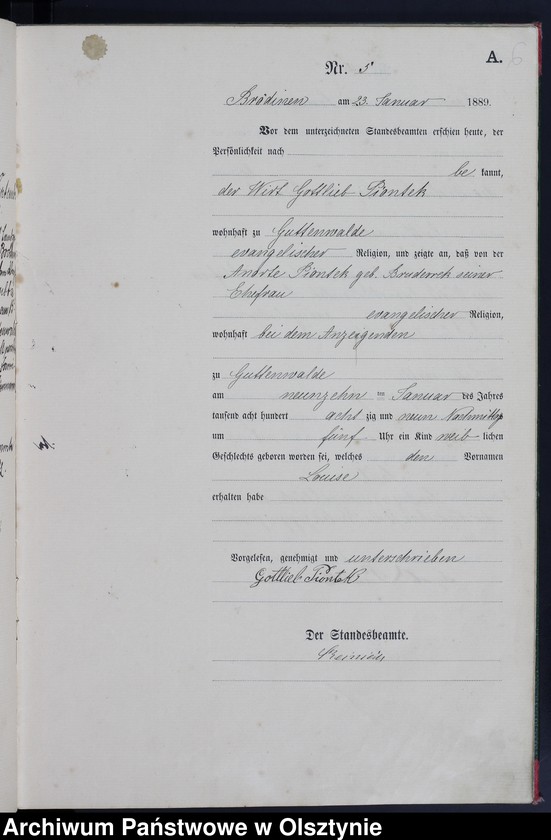 A. 6
Nr. 5
Brödinen am 23. Januar 1889.
Vor dem unterzeichneten Standesbeamten erschien heute, der
Persönlichkeit nach
be kannt,
der Wirt Gottlieb Piontek
wohnhaft zu Guttenwalde
evangelischer Religion, und zeigte an, daß von der
Anorte Piontek geb. seiner
Ehefrau
evangelischer Religion,
wohnhaft bei dem Anzeigenden
zu Guttenwalde
am neunzehn ten Januar des Jahres
tausend acht hundert acht zig und neun Nachmittags
um fünf Uhr ein Kind weib lichen
Geschlechts geboren worden sei, welches den Vornamen
Louise
erhalten habe
Vorgelesen, genehmigt und unterschrieben
Gottlieb Piontek
Der Standesbeamte.
Archiwum Państwowe w Olsztynie